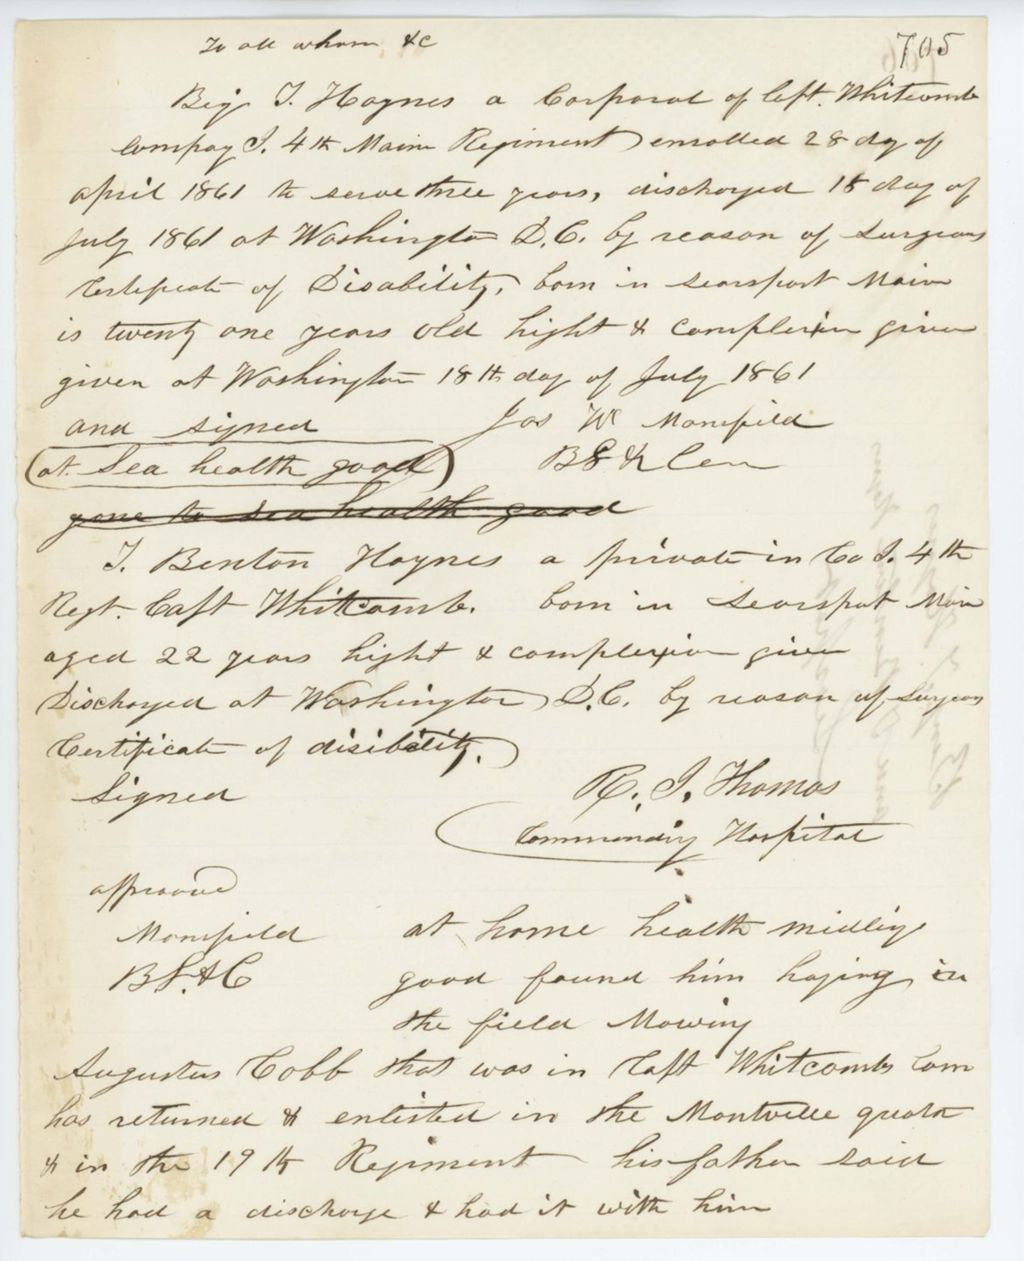 To all whom &c
705
Benj. T. Haynes a Corporal of Capt. Whitcomb
Compay I. 4th Maine Regiment enrolled 28 day of
april 1861 to serve three years, discharged 18 day of
July 1861 at Washington D.C. by reason of Surgeons
Certificate of Disability, born in Searsport Maine
is twenty one years old hight & complexion given
given at Washington 18th day of July 1861
and signed Jas W Mansfield
at Sea health good B G &
gone to sea health good
T. Benton Haynes a private in Co I. 4th
Regt. Capt Whitcomb. born in Searsport Main
aged 22 years hight & complexion given
Discharged at Washington D.C. by reason of Surgeon
Certificate of disibility.
Signed
R. I. Thomas
Commanding Hospital
approved
Mansfield at home health midlig
B G. & C good found him haying in
the field Mowing
Augustus Cobb that was in Capt Whitcombs Com
has returned & enlisted in the Montville quota
& in the 19th Regiment his father said
he had a discharge & had it with him